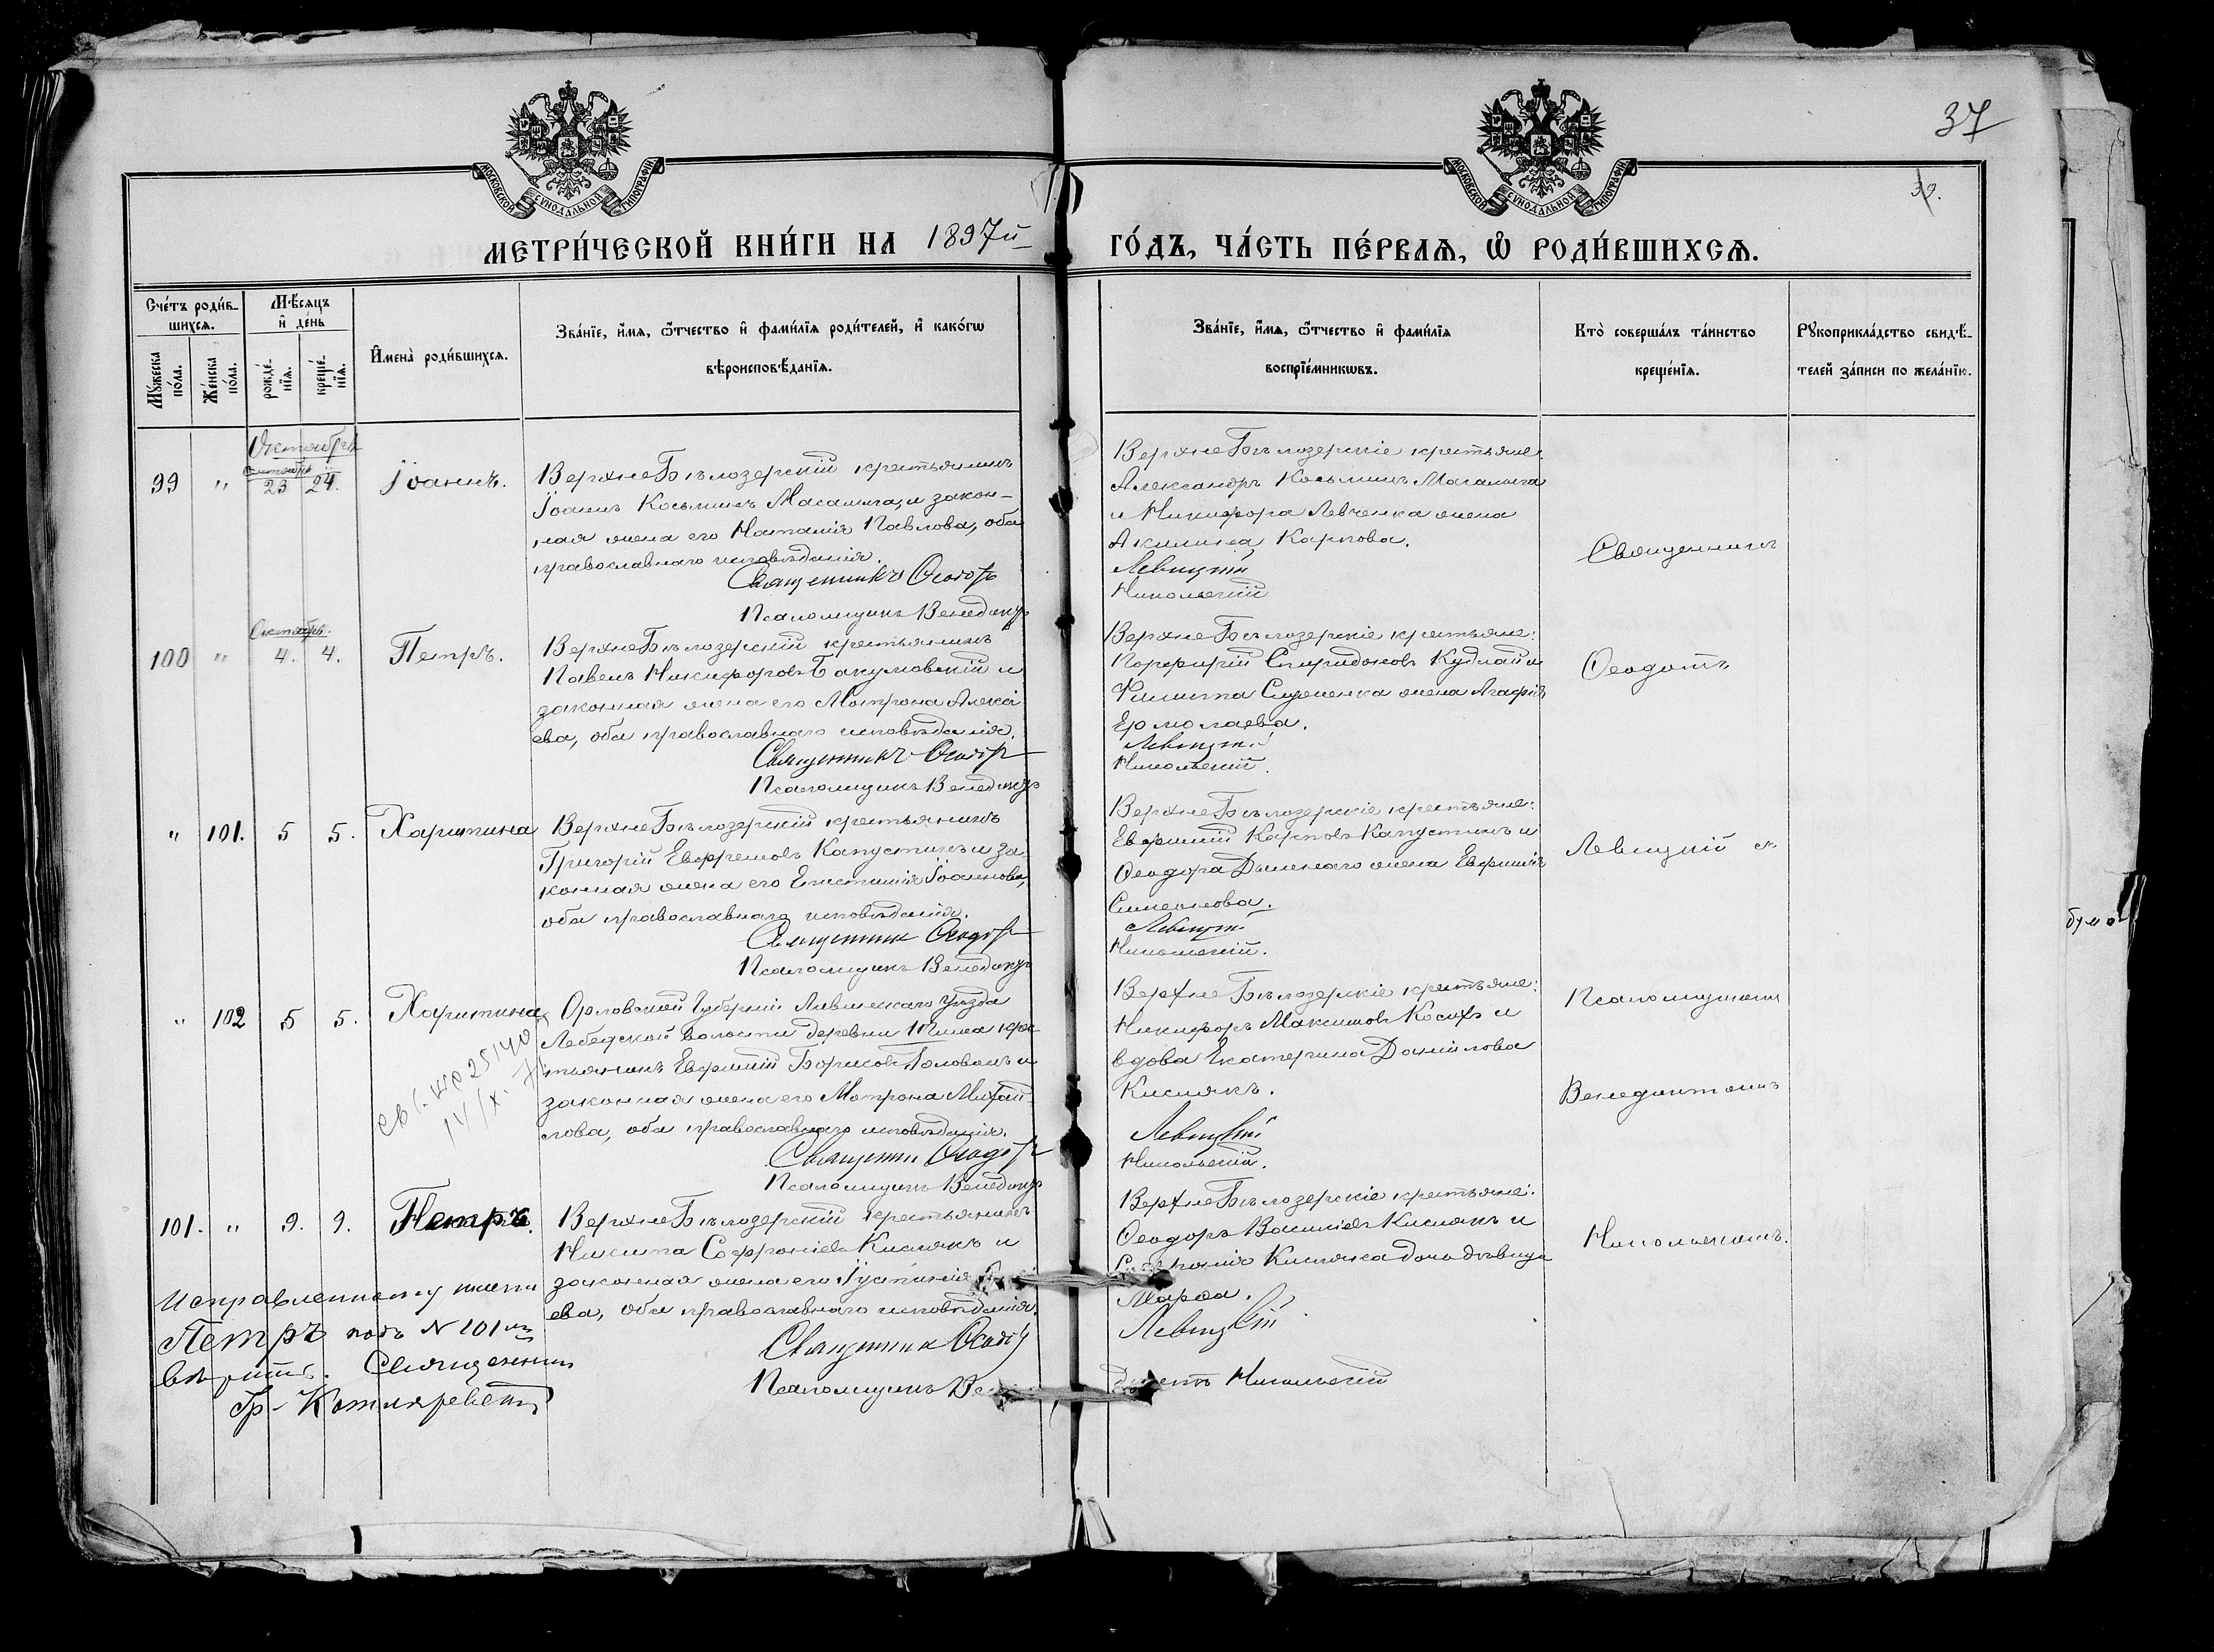 37
39.
МОСКОВСКОЙ СѴНОДАЛЬНОЙ ТИПОГРАФІИ
МОСКОВСКОЙ СѴНОДАЛЬНОЙ ТИПОГРАФІИ
МЕТРИ́ЧЕСКОЙ КНИ́ГИ НА 1897й
ГО́ДЪ, ЧА́СТЬ ПЕ́РВАѦ, Ѽ РОДИ́ВШИХСѦ.
Сче́тъ роди́в-
шихсѧ.
Мѣ́сѧцъ
и҆ де́нь
Мꙋ́жеска по́ла.
Же́нска по́ла.
рожде́-нїѧ.
креще́-нїѧ.
И҆мена̀ роди́вшихсѧ.
Зва́нїе, и҆́мѧ, ѻ҆́тчество и҆ фами́лїѧ роди́телей, и҆ како́гѡ
вѣроисповѣ́данїѧ.
Зва́нїе, и҆́мѧ, ѻ҆́тчество и҆ фами́лїѧ
воспрїе́мникѡвъ.
Кто̀ соверша́лъ та́инство
креще́нїѧ.
Рꙋкоприкла́дство свидѣ́-
телей за́писи по жела́нїю.
Октябрь
99 " 23 24. Іоаннъ.
ВерхнеБѣлозерскій крестьянинъ
Іоаннъ Косьминъ Масалыга, и закон-
ная жена его Наталія Павлова, оба
православнаго исповѣданія.
Священникъ Ѳеодотъ
Псаломщикъ Венедиктъ
ВерхнеБѣлозерскіе крестьяне:
Александръ Косьминъ Масалыга
и Никифора Левченка жена
Акилина Карпова.
Левицкій
Никольскій
Священникъ
Октябрь.
100 " 4. 4. Петръ.
ВерхнеБѣлозерскій крестьянинъ
Павелъ Никифоровъ Бакумовскій и
законная жена его Матрона Алексі
ева, оба православнаго исповѣданія.
Священникъ Ѳеодотъ
Псаломщикъ Венедиктъ
ВерхнеБѣлозерскіе крестьяне:
Порфирій Спиридоновъ Кудлай и
Филиппа жена Агафія
Ермолаева.
Левицкій
Никольскій.
Ѳеодотъ
" 101. 5 5. Харитина
ВерхнеБѣлозерскій крестьянинъ
Григорій Евфремовъ Капустинъ и за-
конная жена его Евстолія Іоаннова,
оба православнаго исповѣданія.
Священникъ Ѳеодотъ
Псаломщикъ Венедиктъ
ВерхнеБѣлозерскіе крестьяне:
Евфимій Карповъ Капустинъ и
Ѳеодора жена Евфимія
Симеонова.
Левицкій
Никольскій.
Левицкій съ
" 102 5 5. Харитина
Орловской Губерніи Ливенскаго Уѣзда
Лебедской волости деревни кре-
стьянинъ Евфимій Борисовъ Головинъ и
законная жена его Матрона Михай-
лова, оба православнаго исповѣданія.
Священникъ Ѳеодотъ
Псаломщикъ Венедиктъ
14/X.
ВерхнеБѣлозерскіе крестьяне:
Никифоръ Максимовъ Косухъ и
вдова Екатерина Даніилова
Кислякъ.
Левицкій
Никольскій.
Псаломщикомъ
Венедиктомъ
101. " 9. 9. Петръ.
ВерхнеБѣлозерскій крестьянинъ
Никита Софроніевъ Кислякъ и
законная жена его Іустинія
ева, оба православнаго исповѣданія.
Священникъ Ѳеодотъ
Псаломщикъ Венедиктъ Никольскій
ВерхнеБѣлозерскіе крестьяне:
Ѳеодоръ Васильевъ Кислякъ и
Софронія Кисляка дочь дѣвица
Марѳа.
Левицкій
Никольскимъ.
Исправленному имени
Петръ подъ № 101мъ
вѣрить. Священник
Гр. Котляревскій